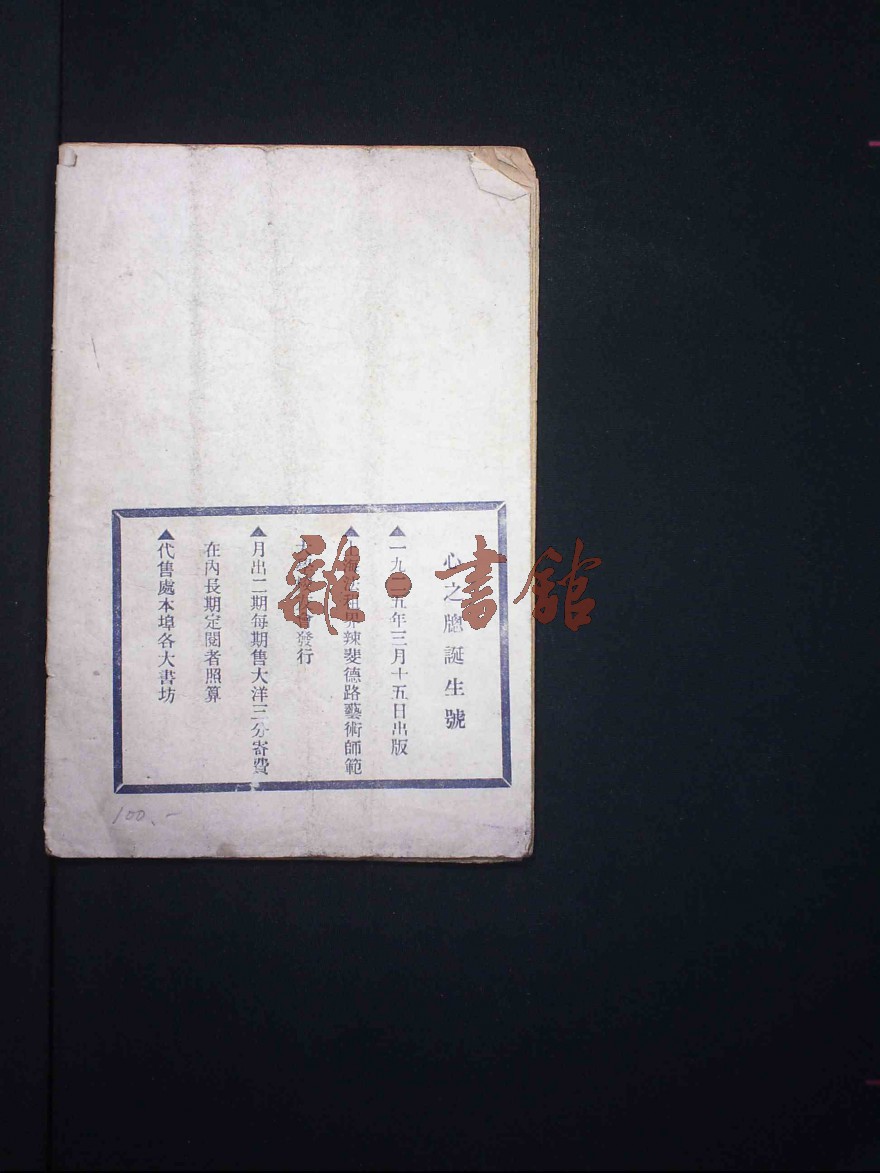 心之牕誕生號
▲一九二五年三月十五日出版
▲上海法租界辣斐德路藝術師範
發行
▲月出二期每期售大洋三分寄費
在內長期定閱者照算
▲代售處本埠各大書坊
雜·書館
100.-